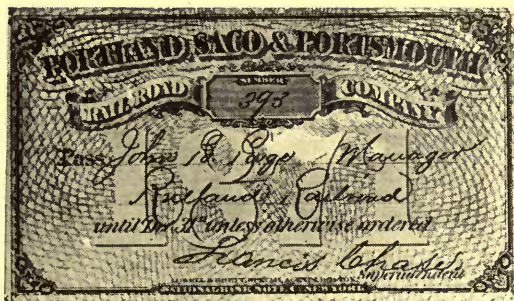 PORTLAND, SACO & PORTSMOUTH
RAIL ROAD COMPANY
NUMBER
393
Pass John B. Page Manager
Rutland Railroad
until Dec. 31st unless otherwise ordered
Francis Chase,
Superintendent
NATIONAL BANK NOTE CO. NEW YORK